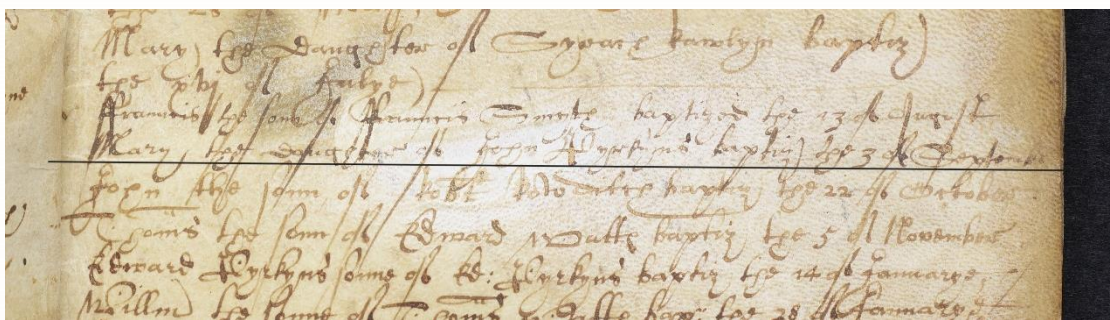 Mary the daughter of baptiz
the xvj of
ffrancis the sonn of ffrancis Smyth baptized the 13 of August
Mary the daughter of John Pyrkyns baptiz the 3 of Septemb
John the sonn of Robt baptiz the 22 of October
Thoms the sonn of Edward Watts baptiz the 5 of November
Edward Pyrkyns sonne of Ed: Pyrkyns baptiz the 14 of Januarye
Willm the sonne of Thoms bap the 28 of Januarye